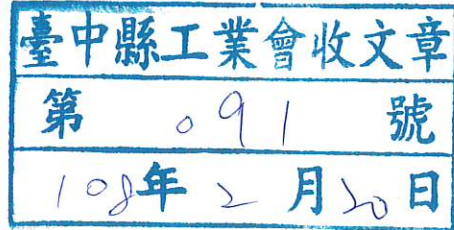 臺中縣工業會收文章
第 091 號
108年 2 月 20 日